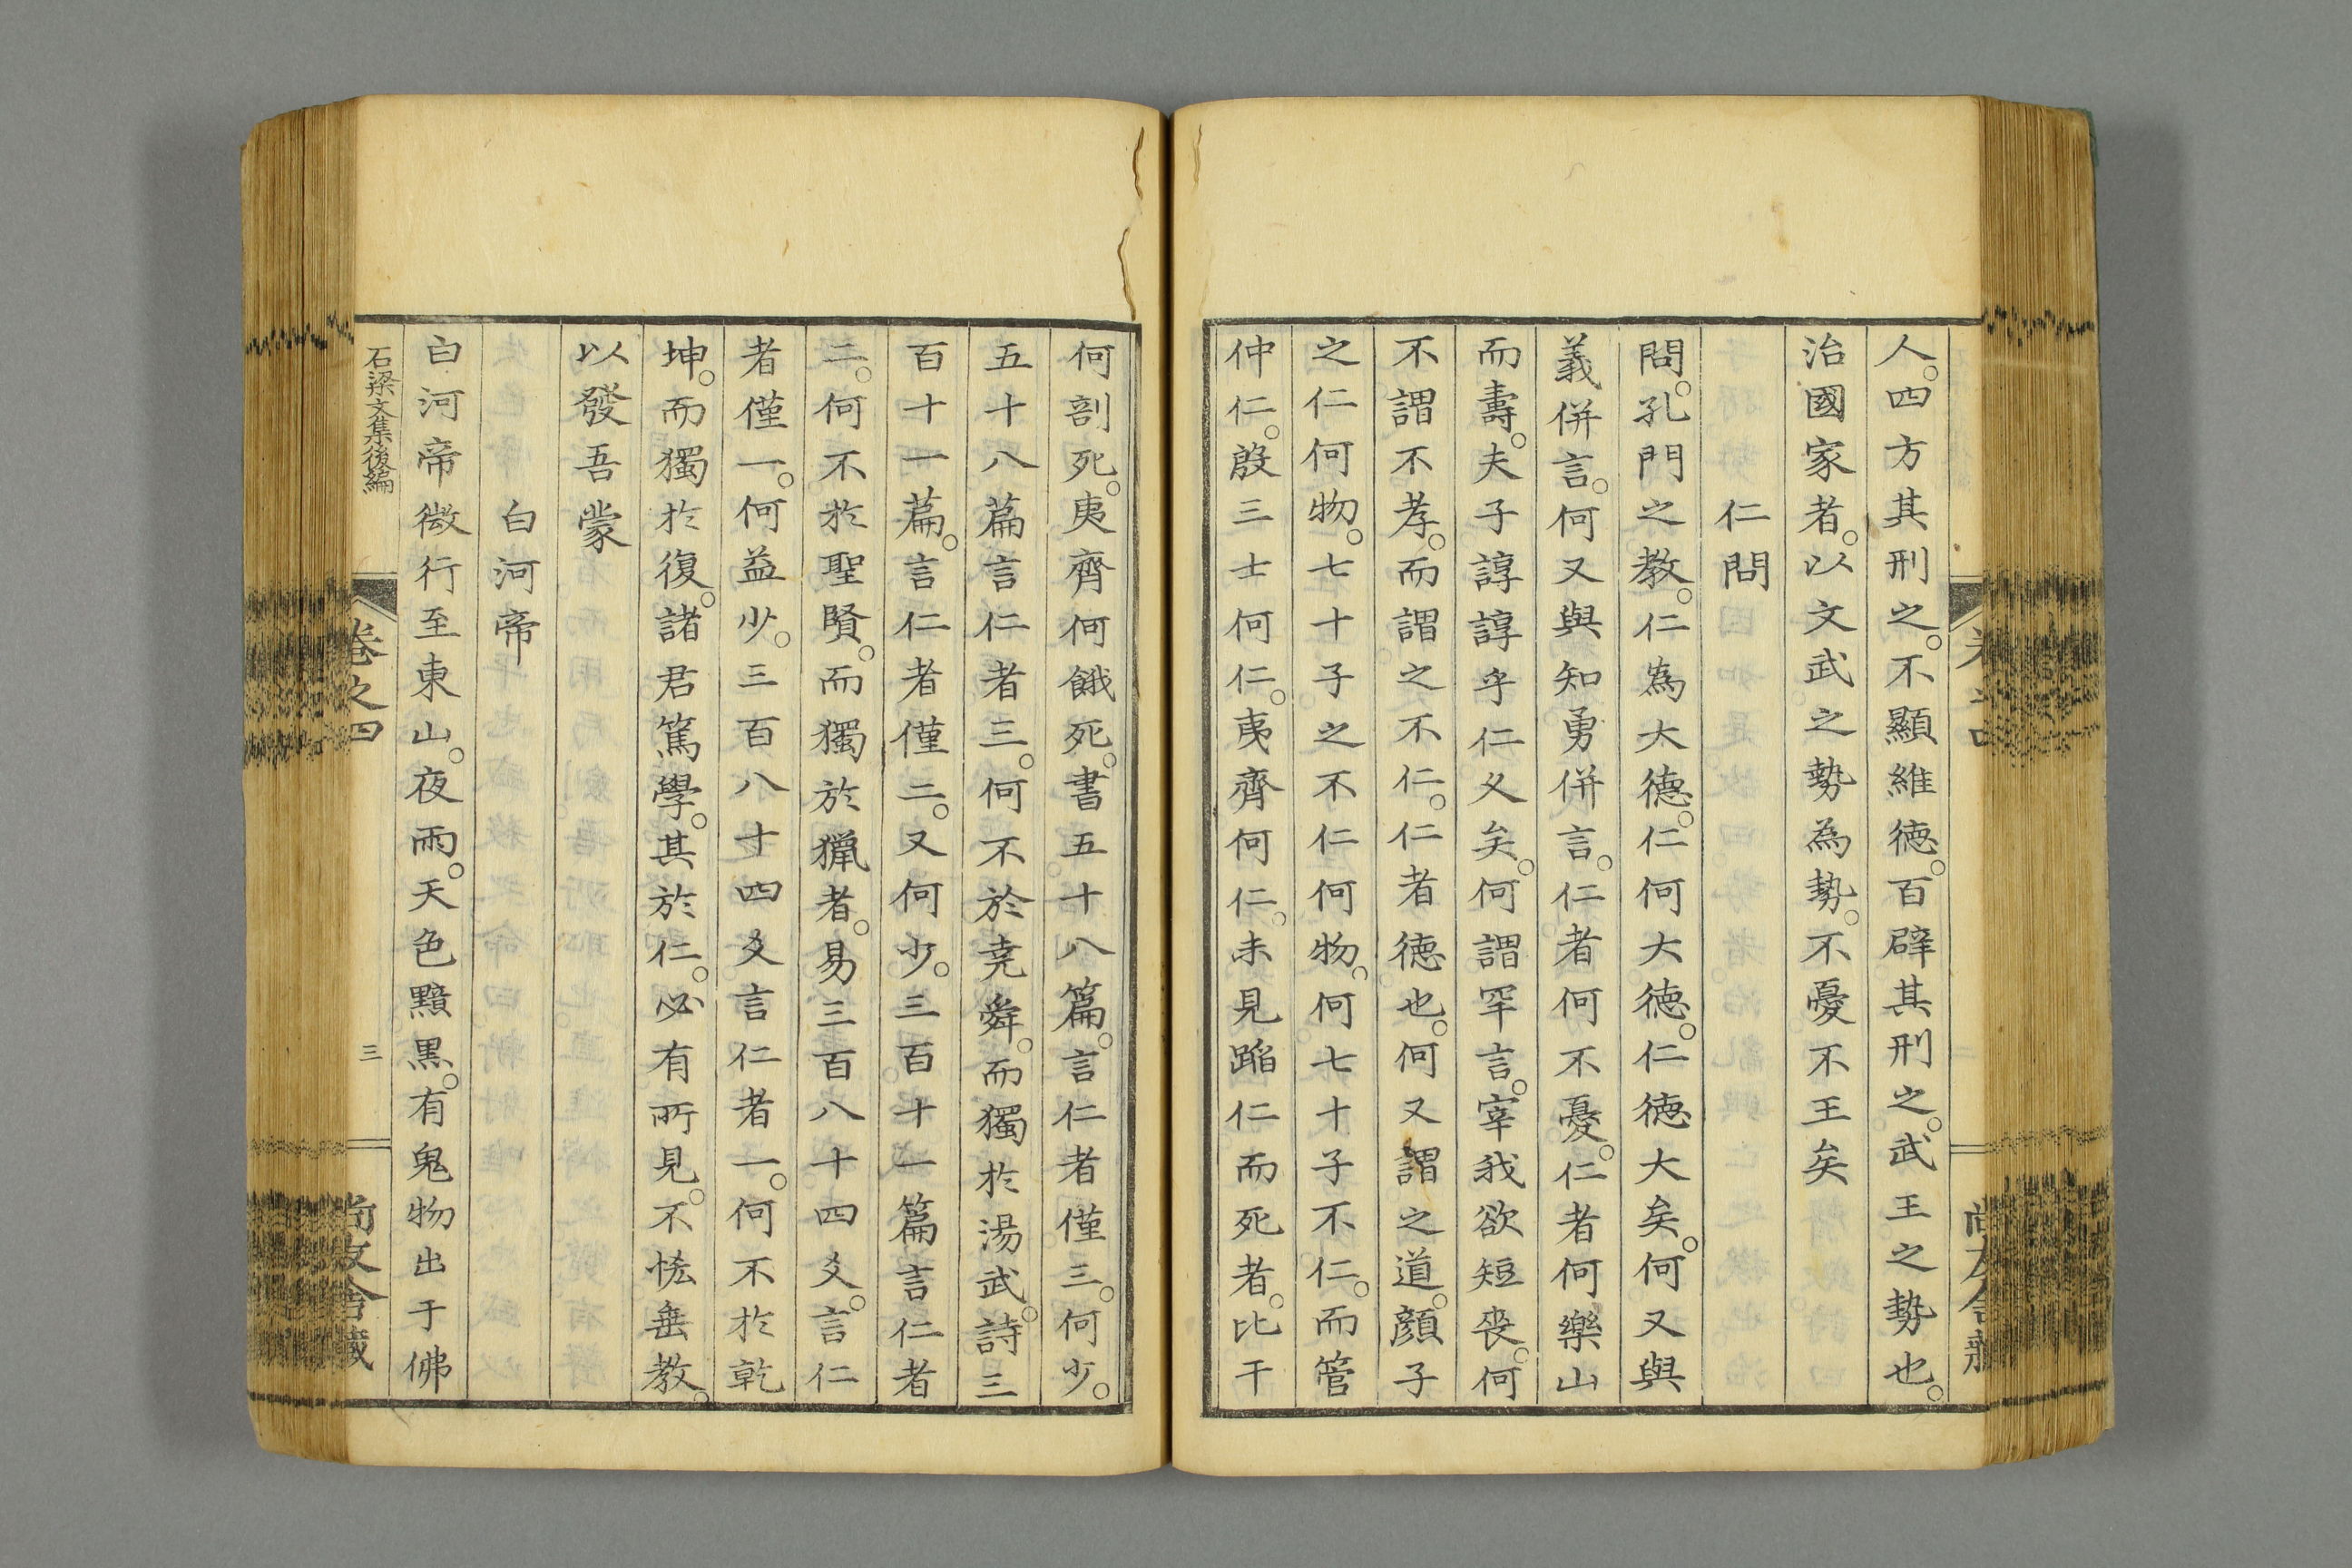 人。四方其刑之。不顯維德。百辟其刑之。武王之勢也。
治國家者。以文武之勢為勢。不憂不王矣
仁問
問。孔門之教。仁為大德。仁何大德。仁德大矣。何又與
義併言。何又與知勇併言。仁者何不憂。仁者何樂山
而壽。夫子諄諄乎仁久矣。何謂罕言。宰我欲短喪。何
不謂不孝。而謂之不仁。仁者德也。何又謂之道。顏子
之仁何物。七十子之不仁何物。何七十子不仁。而管
仲仁。殷三士何仁。夷齊何仁。未見蹈仁而死者。比干
何剖死。夷齊何餓死。書五十八篇。言仁者僅三。何少。
五十八篇言仁者三。何不於堯舜。而獨於湯武。詩三
百十一篇。言仁者僅二。又何少。三百十一篇言仁者
二。何不於聖賢。而獨於獵者。易三百八十四爻。言仁
者僅一。何益少。三百八十四爻言仁者一。何不於乾
坤。而獨於復。諸君篤學。其於仁。必有所見。不恡垂教。
以發吾蒙
白河帝
白河帝微行至東山。夜雨。天色黯黑。有鬼物出于佛
石梁文集後編
卷之四
三
尚友舍藏